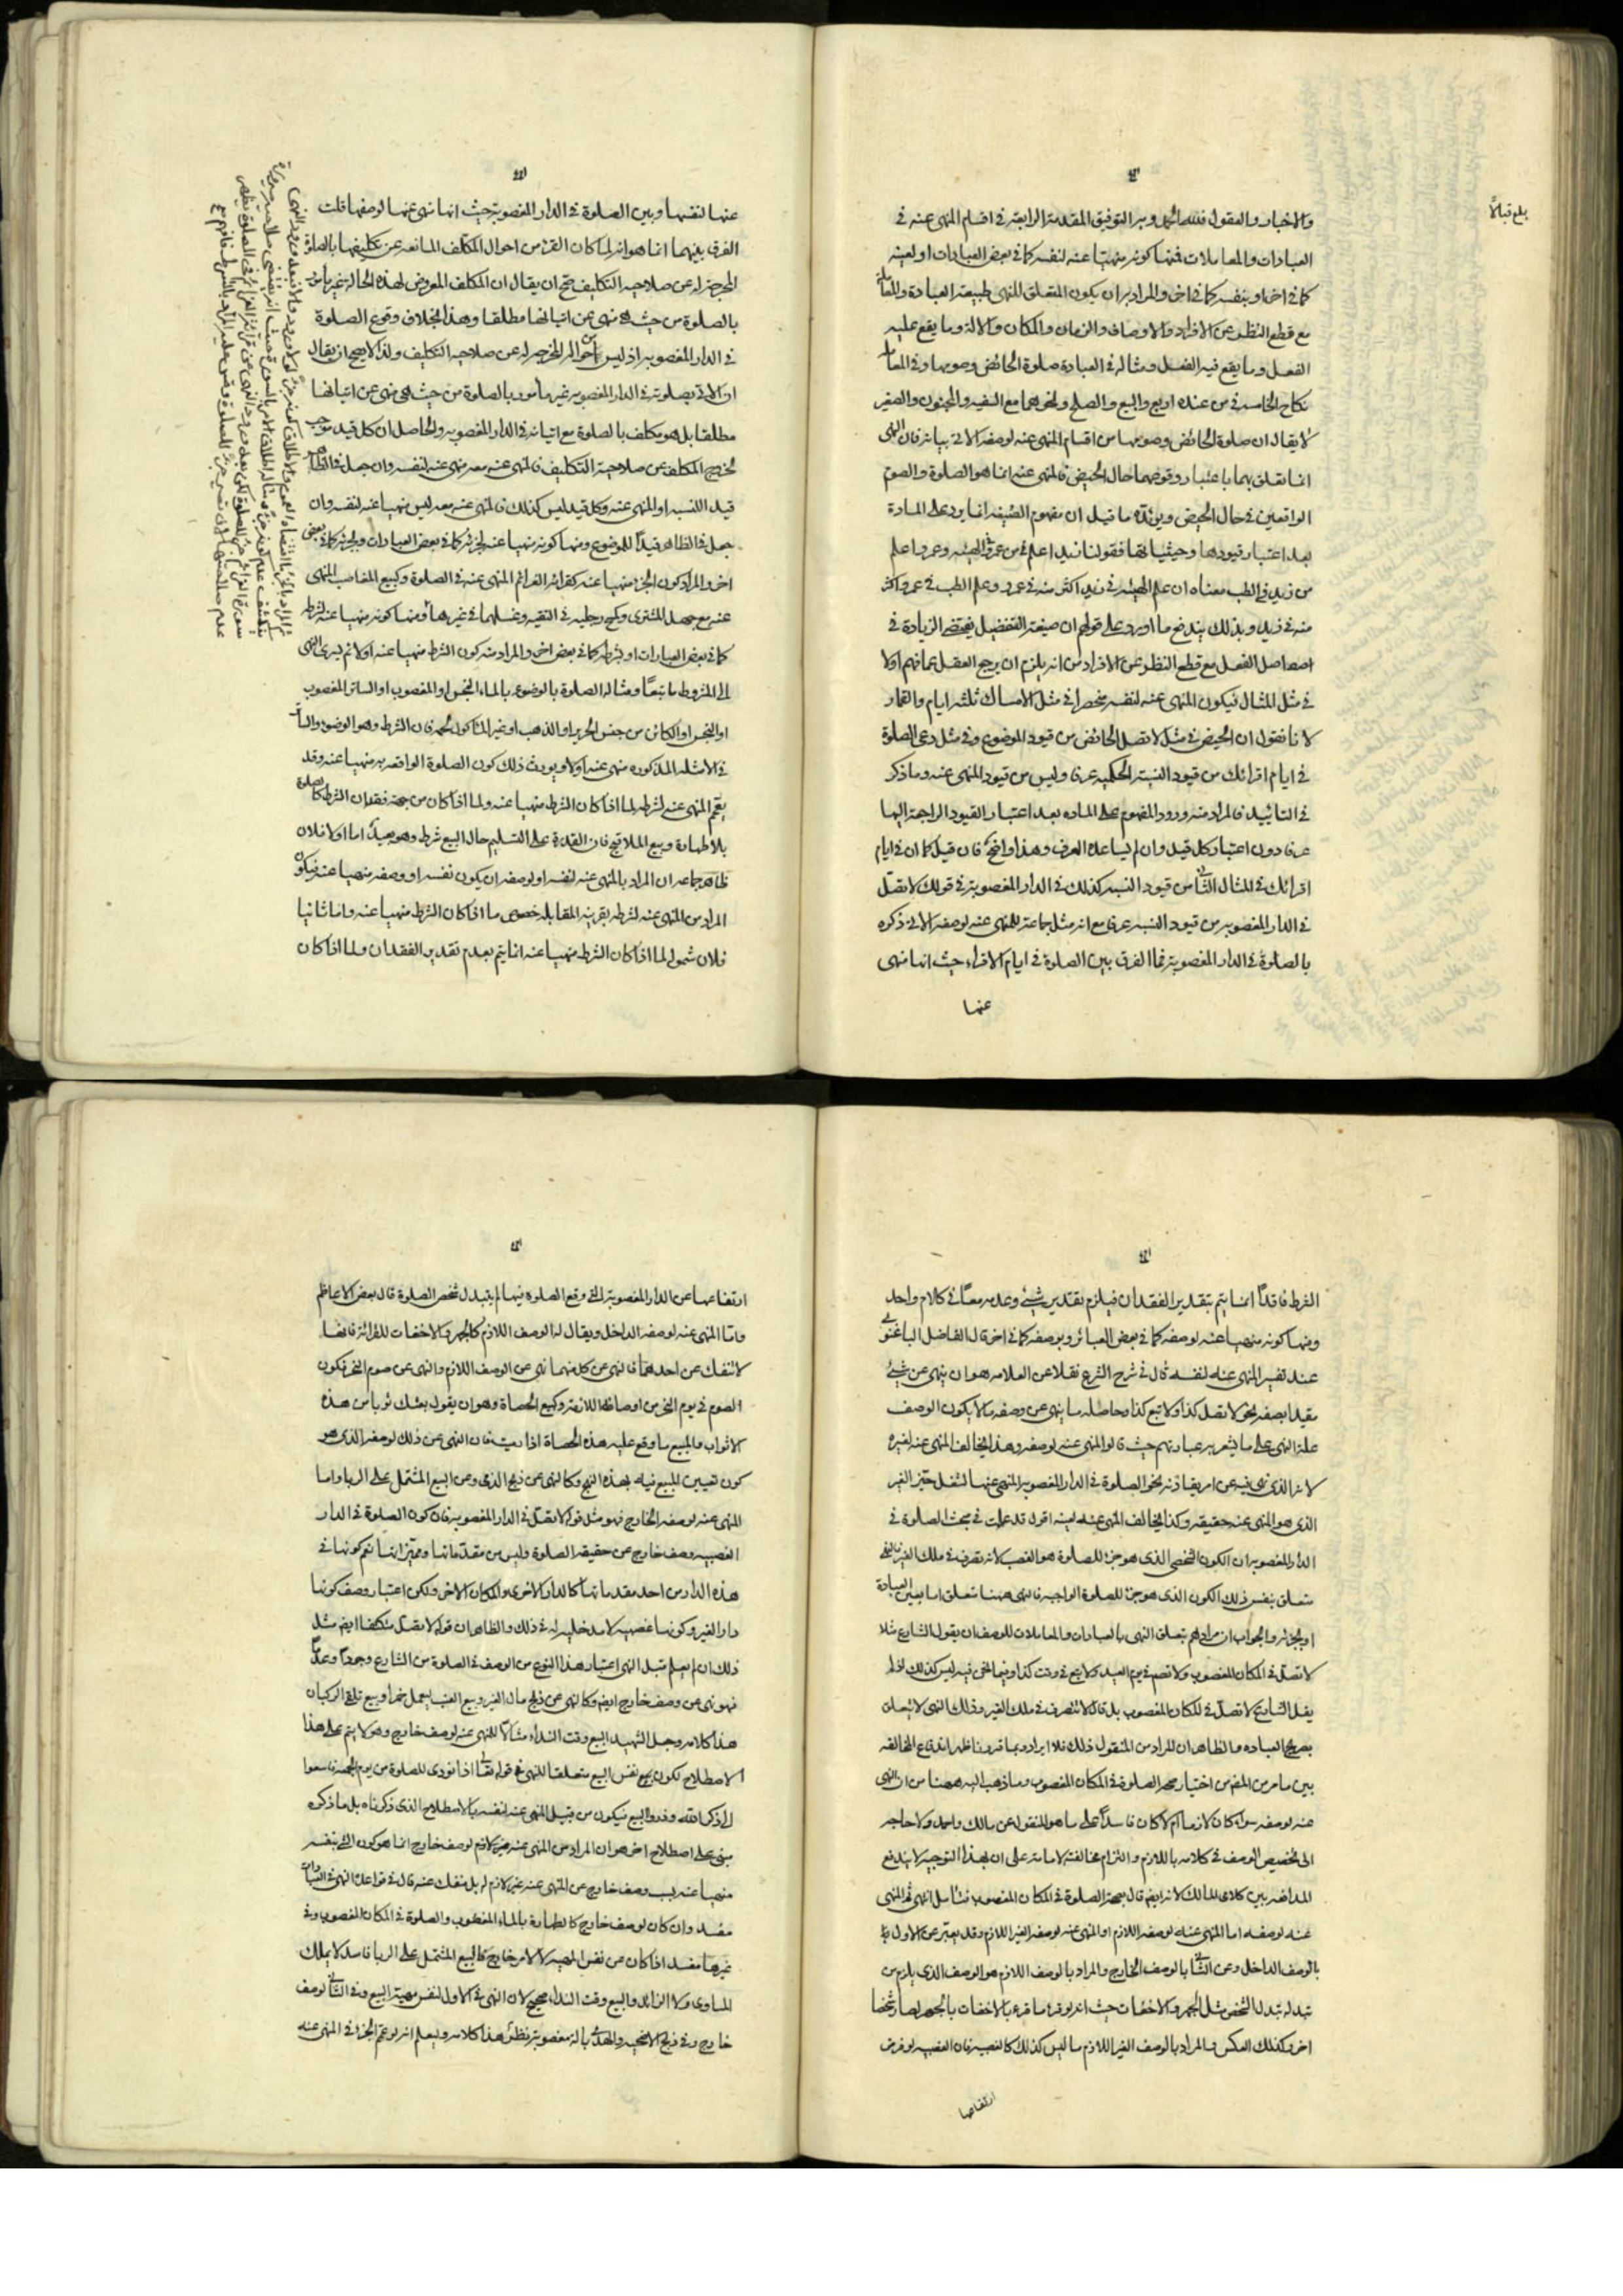 والاخبار والعقول فلله الحمد وبه التوفيق المقدمة الرابعة في اقسام المنهي عنه في
العبادات والمعاملات فمنها كونه منهيا عنه لنفسه كما في بعض العبادات او لعينه
كما في اخر او بنفسه كما في اخر والمراد به ان يكون المتعلق للنهي طبيعة العبادة والمعاملة
مع قطع النظر عن الافراد والاوصاف والزمان والمكان والالة وما يقع عليه
الفعل وما يقع فيه الفعل ومثاله في العبادة صلوة الحائض وصومها وفي المعاملة
نكاح الخامسة من عنده اربع والبيع والصلح ونحوهما مع السفيه والمجنون والصغير
لا يقال ان صلوة الحائض وصومها من اقسام المنهي عنه لوصفه الاتي بيانه فان النهي
انما تعلق بهما باعتبار وقوعهما حال الحيض فالمنهي عنه انما هو الصلوة والصوم
الواقعين في حال الحيض ويؤيده ما قيل ان مفهوم الصيغة انما يرد على المادة
بعد اعتبار قيودها وحيثياتها فقولنا زيد اعلم من عمرو في الهيئة وعمرو اعلم
من زيد في الطب معناه ان علم الهيئة في زيد اكثر منه في عمرو وعلم الطب في عمرو اكثر
منه في زيد وبذلك يندفع ما اورد على قولهم ان صيغة التفضيل يقتضي الزيادة في
اصل الفعل مع قطع النظر عن الافراد من انه يلزم ان يرجع العقل عما فهم اولا
في مثل المثال فيكون المنهي عنه لنفسه منحصرا في مثل الامساك ثلثة ايام والقمار
لانا نقول ان الحيض في مثل لا تصل الحائض من قيود الموضوع وفي مثل دعي الصلوة
في ايام اقرائك من قيود النسبة الحكمية عرفا وليس من قيود المنهي عنه وما ذكر
في التاييد فالمراد منه ورود المفهوم على المادة بعد اعتبار القيود الراجعة اليها
عرفا دون اعتبار كل قيد وان لم يساعده العرف وهذا واضح فان قيل كما ان في ايام
اقرائك في المثال الثاني من قيود النسبة كذلك في الدار المغصوبة في قولك لا تصل
في الدار المغصوبة من قيود النسبة عرفا مع انه مثل جماعة للمنهي عنه لوصفه الاتي ذكره
بالصلوة في الدار المغصوبة فما الفرق بين الصلوة في ايام الاقراء حيث انها منهي
عنها
بلغ قبالا
عنها لنفسها وبين الصلوة في الدار المغصوبة حيث انها نهي عنها لوصفها قلت
الفرق بينهما انما هو انه لما كان القرء من احوال المكلف المانعة عن تكليفها بالصلوة
المخرجة له عن صلاحية التكليف صح ان يقال ان المكلف المعروض لهذه الحالة غير مأمور
بالصلوة من حيث هي منهي عن اتيانها مطلقا وهذا بخلاف وقوع الصلوة
في الدار المغصوبة اذ ليس من احواله المخرجة له عن صلاحية التكليف ولذا لا يصح ان يقال
ان الاتي بصلوته في الدار المغصوبة غير مأمور بالصلوة من حيث هي منهي عن اتيانها
مطلقا بل هو مكلف بالصلوة مع اتيانه في الدار المغصوبة والحاصل ان كل قيد يوجب
خروج المكلف عن صلاحية التكليف فالمنهي عنه معه منهي عنه لنفسه وان جعل في الظاهر
قيد اللنسبة او المنهي عنه وكل قيد ليس كذلك فالمنهي عنه معه ليس منهيا عنه لنفسه وان
جعل في الظاهر قيدا للموضوع ومنها كونه منهيا عنه لجزئه كما في بعض العبادات وبجزئه كما في بعض
اخر والمراد كون الجزء منهيا عنه كقرائة العزائم المنهي عنه في الصلوة وكبيع الغاصب المنهي
عنه مع جهل المشتري وكمسح رجليه في التقية وغسلهما في غيرها ومنها كونه منهيا عنه لشرطه
كما في بعض العبارات او بشرطه كما في بعض اخر والمراد منه كون الشرط منهيا عنه اولا ثم يسري النهي
الى المشروط تبعا ومثاله الصلوة بالوضوء بالماء النجس او المغصوب او الساتر المغصوب
او النجس او الكائن من جنس الحرير او الذهب او غير المأكول لحمه فان الشرط وهو الوضوء والساتر
في الامثلة المذكورة منهي عنه اولا ويورث ذلك كون الصلوة الواقعة به منهيا عنه وقد
يعمم المنهي عنه لشرطه لما اذا كان الشرط منهيا عنه ولما اذا كان من جهة فقدان الشرط كالصلوة
بلا طهارة وبيع الملاقيح فان القدرة على التسليم حال البيع شرط وهو بعيد اما اولا فلان
ظاهر جماعة ان المراد بالمنهي عنه لنفسه او لوصفه ان يكون نفسه او وصفه منهيا عنه فيكون
المراد من المنهي عنه لشرطه بقرينة المقابلة خصوص ما اذا كان الشرط منهيا عنه واما ثانيا
فلان شموله لما اذا كان الشرط منهيا عنه انما يتم بعدم تقدير الفقدان ولما اذا كان
الشرط فاقدا انما يتم بتقدير الفقدان فيلزم تقدير شيء وعدمه معا في كلام واحد
ومنها كونه منهيا عنه لوصفه كما في بعض العبائر وبوصفه كما في اخر قال الفاضل الباغنوي
عند تفسير المنهي عنه لنفسه قال في شرح الشرح نقلا عن العلامة هو ان ينهى عن شيء
مقيدا بصفة نحو لا تصل كذا ولا تبع كذا وحاصله ما ينهى عن وصفه لا ما يكون الوصف
علة النهي على ما يشعر به عبارتهم حيث قالوا المنهي عنه لوصفه وهذا يخالف المنهي عنه لغيره
لانه الذي نهي فيه عن امر يقارنه نحو الصلوة في الدار المغصوبة المنهي عنها لشغل حيز الغير
الذي هو المنهي عنه حقيقة وكذا يخالف المنهي عنه لعينه اقول قد علمت في مبحث الصلوة في
الدار المغصوبة ان الكون الشخصي الذي هو جزء للصلوة هو الغصب لانه تصرف في ملك الغير فالنهي
متعلق بنفس ذلك الكون الذي هو جزء للصلوة الواجبة فالنهي ههنا تعلق اما بعين العبادة
او بجزئه والجواب ان مرادهم بتعلق النهي بالعبادات والمعاملات للوصف ان يقول الشارع مثلا
لا تصل في المكان المغصوب ولا تصم في يوم العيد ولا تبع في وقت كذا وفيما نحن فيه ليس كذلك اذ لم
يقل الشارع لا تصل في المكان المغصوب بل قال لا تتصرف في ملك الغير وذلك النهي لا يتعلق
بصريح العبادة والظاهر ان المراد من المنقول ذلك فلا ايراد وبما قررنا ظهر اندفاع المخالفة
بين ما مر من المص من اختيار صحة الصلوة في المكان المغصوب وما ذهب اليه ههنا من ان النهي
عنه لوصفه سواء كان لازما ام لا كان فاسدا على ما هو المنقول عن مالك واحمد ولا حاجة
الى تخصيص الوصف في كلامه باللازم والتزام مخالفته لامامه على ان بهذا التوجيه لا يندفع
المدافعة بين كلامي المالك لانه ايضا قال بصحة الصلوة في المكان المغصوب فتأمل انتهى ثم المنهي
عنه لوصفه اما المنهي عنه لوصفه اللازم او المنهي عنه لوصفه الغير اللازم وقد يعبر عن الاول
بالوصف الداخل وعن الثاني بالوصف الخارج والمراد بالوصف اللازم هو الوصف الذي يلزم من
تبدله تبدل الشخص مثل الجهر والاخفات حيث انه لو قرء ما قرء بالاخفات بالجهر لصار شخصا
اخر وكذلك العكس والمراد بالوصف الغير اللازم ما ليس كذلك كالغصبية فان الغصبية لو فرض
ارتفاعها
ارتفاعها عن الدار المغصوبة التي وقع الصلوة فيها لم يتبدل شخص الصلوة قال بعض الاعاظم
واما المنهي عنه لوصفه الداخل ويقال له الوصف اللازم كالجهر والاخفات للقرائة فانها
لا تنفك عن احدهما فالنهي عن كل منهما نهي عن الوصف اللازم والنهي عن صوم النحر فكون
الصوم في يوم النحر من اوصافها اللازمة وكبيع الحصاة وهو ان يقول بعتك ثوبا من هذه
الاثواب والمبيع ما وقع عليه هذه الحصاة اذا رميت فان النهي عن ذلك لوصفه الذي هو
كون تعيين المبيع فيه بهذه النهج وكالنهي عن ذبح الذمي وعن البيع المشتمل على الربا واما
المنهي عنه لوصفه الخارج فهو مثل قوله لا تصل في الدار المغصوبة فان كون الصلوة في الدار
الغصبية وصف خارج عن حقيقة الصلوة وليس من مقدماتها ومميزاتها نعم كونها في
هذه الدار من احد مقدماتها كالدار الاخرى والمكان الاخر ولكن اعتبار وصف كونها
دار الغير وكونها غصبية لا مدخلية له في ذلك والظاهر ان قوله لا تصل متكتفا ايضا مثل
ذلك ان لم يعلم قبل النهي اعتبار هذا النوع من الوصف في الصلوة من الشارع وجودا وعدما
فهو نهي عن وصف خارج ايضا وكالنهي عن ذبح مال الغير وبيع العنب ليعمل خمرا وبيع تلقي الركبان
هذا كلامه وجعل الشهيد البيع وقت النداء مثالا للنهي عنه لوصف خارج وهو لا يتم على هذا
الاصطلاح لكون نفس البيع متعلقا للنهي في قوله تعالى اذا نودي للصلوة من يوم الجمعة فاسعوا
الى ذكر الله وذروا البيع فيكون من قبيل المنهي عنه لنفسه بالاصطلاح الذي ذكرناه بل ما ذكره
مبني على اصطلاح اخر هو ان المراد من المنهي عنه لوصف خارج انما هو كون الشيء بنفسه
منهيا عنه بسبب وصف خارج عن المنهي عنه غير لازم له بل منفك عنه قال في قواعده النهي في العبادات
مفسد وان كان لوصف خارج كالطهارة بالماء المغصوب والصلوة في المكان المغصوب وفي
غيرها مفسد اذا كان عن نفس المهية لا لامر خارج فالبيع المشتمل على الربا فاسد لا يملك
المساوي ولا الزائد والبيع وقت النداء صحيح لان النهي في الاول لنفس مهية البيع وفي الثاني لوصف
خارج وفي ذبح الاضحية والهدي بالة مغصوبة نظر هذا كلامه وليعلم انه لو عمم الجزء في المنهي عنه